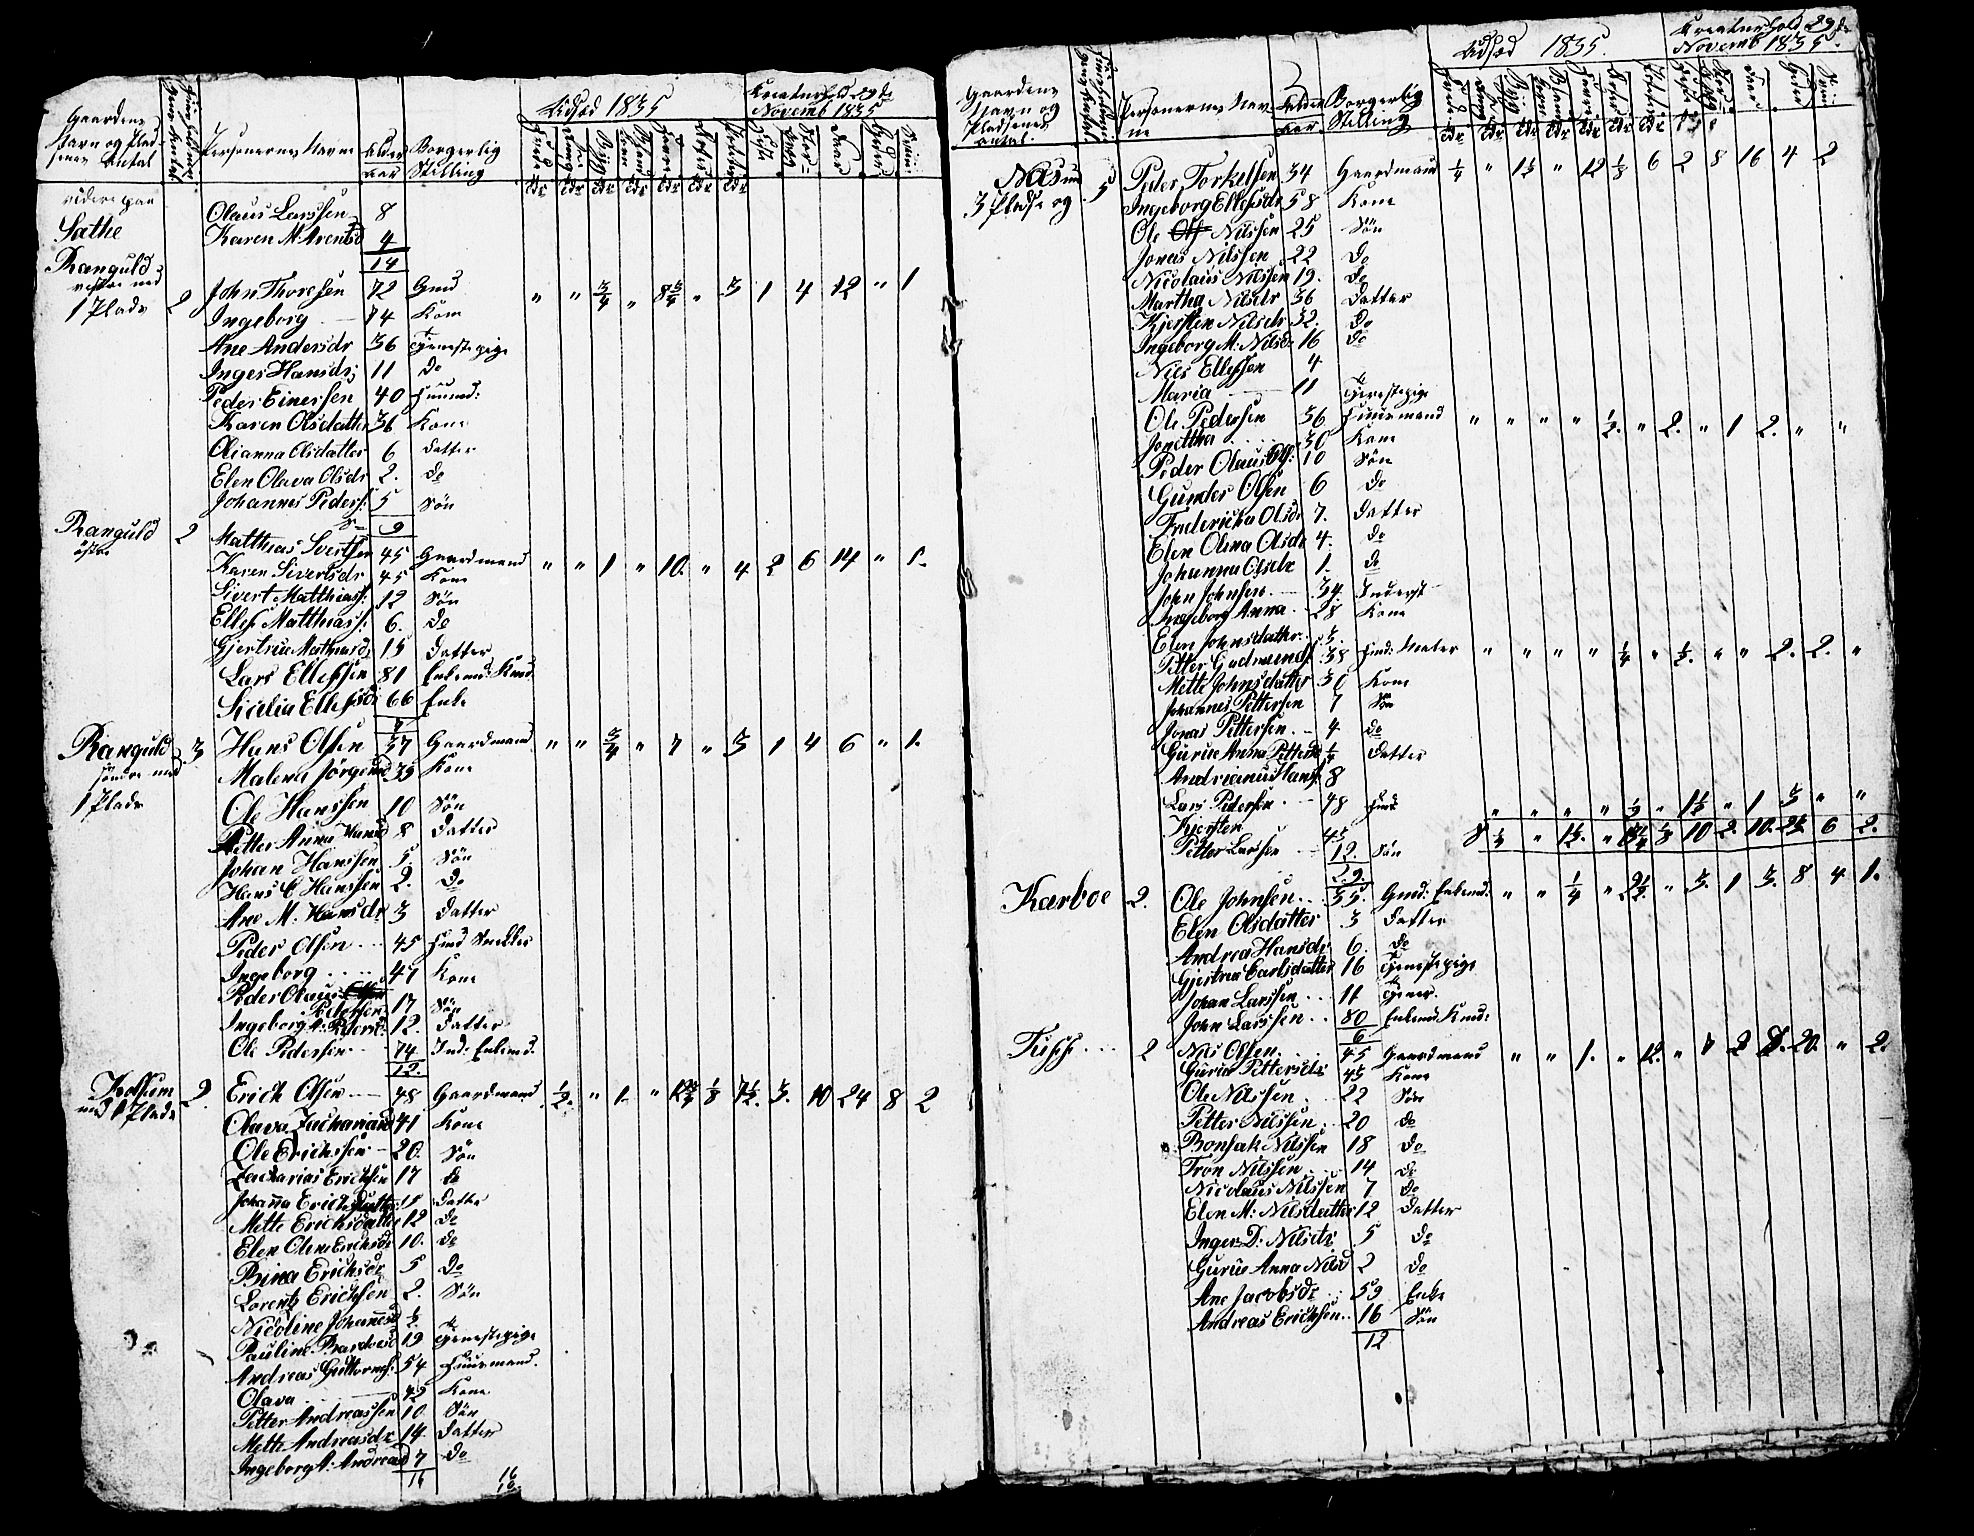 Gaardens Navn og Pladsenes Antal
Personernes Navne
Alder
Aar
Borgerlig Stilling
Udsæd 1835
Kreaturhold 29de Novemb 1835
videre paa
Sathe
Olaus Larssen 8
Karen M Arentsd 4
14
Ranguld vestre med 1 Plads 2
John Thoresen 72 Gmd " " 3/4 " 8 3/4 " 3 1 4 12 " 1
Ingeborg 74 Kone
Ane Andersdr 36 Tjenestepige
Inger Hansdr 11 do
Peder Einersen 40 Huusmd:
Karen Olsdatter 36 Kone
Olianna Olsdatter 6 Datter
Elen Olava Olsdr 2. do
Johannes Peders: 5 Søn
9
Ranguld østre 2
Matthias Sivertsen 45 Gaardmand " " 1 " 10. " 4 2 6 14 " 1.
Karen Sivertsdr 45 Kone
Sivert Matthiass: 12 Søn
Elles Matthiass: 6. do
Gjertrue Mathiasd: 15 Datter
Lars Ellefsen 81 Enkemd: Kmd
Sicelia Ellefsdr 66 Enke
7
Ranguld søndre med 1 Plads 3
Hans Olsen 37 Gaardmand " " 3/4 " 7 " 3 1 4 6 " 1.
Malena Jørgensd 35 Kone
Ole Hanssen 10 Søn
Petter Anna Hansd 8 Datter
Johan Hanssen 5. Søn
Hans C Hanssen 2. do
Ane M. Hansdr 3 Datter
Peder Olsen 45 Huusmd Snedker
Ingeborg 47 Kone
Peder Olaus Pedersen 17 Søn
Ingeborg A: Pedersd: 12. Datter
Ole Pedersen 74 Ind: Enkemd:
12.
Kolhum med 1 Plads 2.
Erich Olsen 48 Gaardmand 1/2. " 1. " 12 3/4 1/8 7 1/2. 3. 10 24 8 2
Olava Zachariasd 41 Kone
Ole Erichssen 20. Søn
Zacharias Erichsen 17 do
Johanna Erichsdatter Datter
Mette Erichsdatter 12 do
Elen Oline Erichsdr 10. do
Bina Erichsdr 5 do
Lorentz Erichsen 2. Søn
Nicoline Johannesd 1/2.
Pauline Bardoesd 19 Tjenestepige
Andreas Guttormss: 54 Huusmand.
Olava 42 Kone
Petter Andreassen 10. Søn
Mette Andreasdr 14 Datter
Ingeborg A: Andreasd 7 do
16
16
16

Gaardens Navn og Pladsenes Antal
Personernes Navne
Alder
Aar
Borgerlig Stilling
Udsæd 1835.
Kreaturhold 29de Novemb 1835.
Næs med 3 Pladse og 5
Peder Torkelsen 54 Gaardmand 1/4 " 1 1/2 " 12 1/8 6 2 8 16 4 2
Ingeborg Ellefsdr 58 Kone
Ole Nilssen 25 Søn
Jonas Nilssen 22 do
Nicolaus Nilssen 19. do
Martha Nilsdr 36 Datter
Kjersten Nilsdr 32. do
Ingeborg M: Nilsdr 16 do
Nils Ellefsen 4
Maria 11 Tjenestepige
Ole Pedersen 36 Huusmand " " " " 1/2. " 2. " 1 2. " "
Jonettha 30 Kone
Peder Olaus Ols: 10 Søn
Gunder Olsen 6 do
Fredericka Olsdr 7. Datter
Elen Olena Olsdr 4. do
Johanna Olsdr 1. do
John Johnsen 34. Inderst
Ingeborg Anna 28 Kone
Elen Johnsdatter
Petter Gudmunds: 38 " " " " 1/4 " " " 2. 2. "
Mette Johnsdatter 30 Kone
Johannes Pettersen 7 Søn
Jonas Pettersen 4 do
Gurue Anna Pettersdr Datter
Andrianus Hans: 8
Lars Pedersen 48 " " " " " " 1 3 " "
Kjersten 45
Petter Larssen 12. Søn
10 2. 10. 6 2.
Karboe 2.
Ole Johnsen 35. Gmd: Enkemd: " " 1/4 " 2 1/2. " 3. 1 3. 8 4 1.
Elen Olsdatter 3 Datter
Andrea Hansdr 6. do
Gjertrue Carlsdatter 16 Tjenestepige
Johan Larssen 11 Tjener.
John Larssen 80 Enkemd Kmd:
6
2
Nils Olsen 45 Gaardmand " " 1. " 12. " 7 2 20. " 2.
Gurue Pettersdr 45 Kone
Ole Nilssen 22 Søn
Petter Nilssen 20 do
Bonsak Nilssen 18 do
Tron Nilssen 14 do
Nicolaus Nilssen 7 do
Elen M: Nilsdatter 12 Datter
Inger D: Nilsdr 5 do
Gurue Anna Nilsd 2 do
Ane Jacobsdr 59 Enke
Andreas Erichsen 16 Søn
12